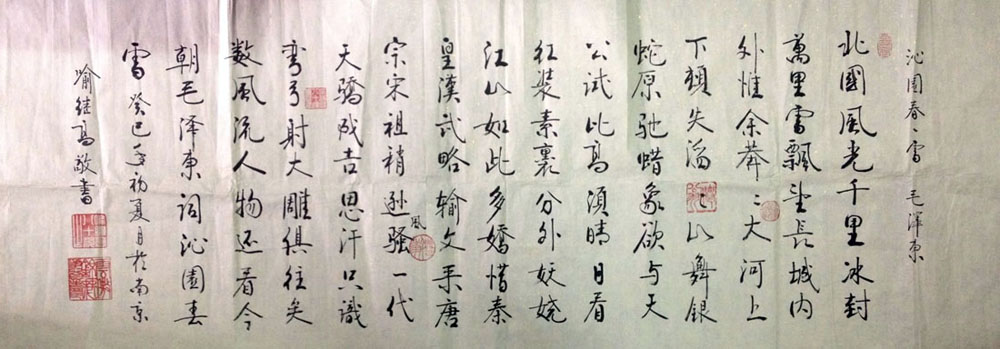 沁園春·雪 毛澤東
北國風光千里冰封
萬里雪飄望長城内
外惟余莽〻大河上
下顿失滔〻山舞銀
蛇原驰蜡象欲与天
公試比高須晴日看
红装素裹分外妖娆
江山如此多嬌惜秦
皇漢武略输文采唐
宗宋祖稍逊風骚一代
天驕成吉思汗只識
彎弓射大雕俱往矣
数風流人物还看今
朝毛泽東词沁園春
雪 癸巳年初夏月於南京
喻继高敬書